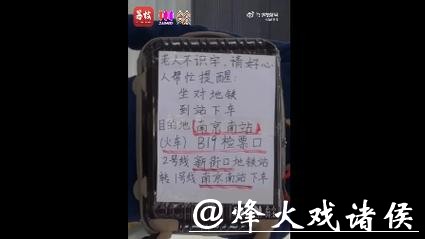 荔枝
老人不识字,请好心
人帮忙提醒:
坐对地铁
到站下车
目的地 南京南站
(火车) B19检票口
2号线 新街口地铁站
转1号线 南京南站下车
@烽火戏诸侯